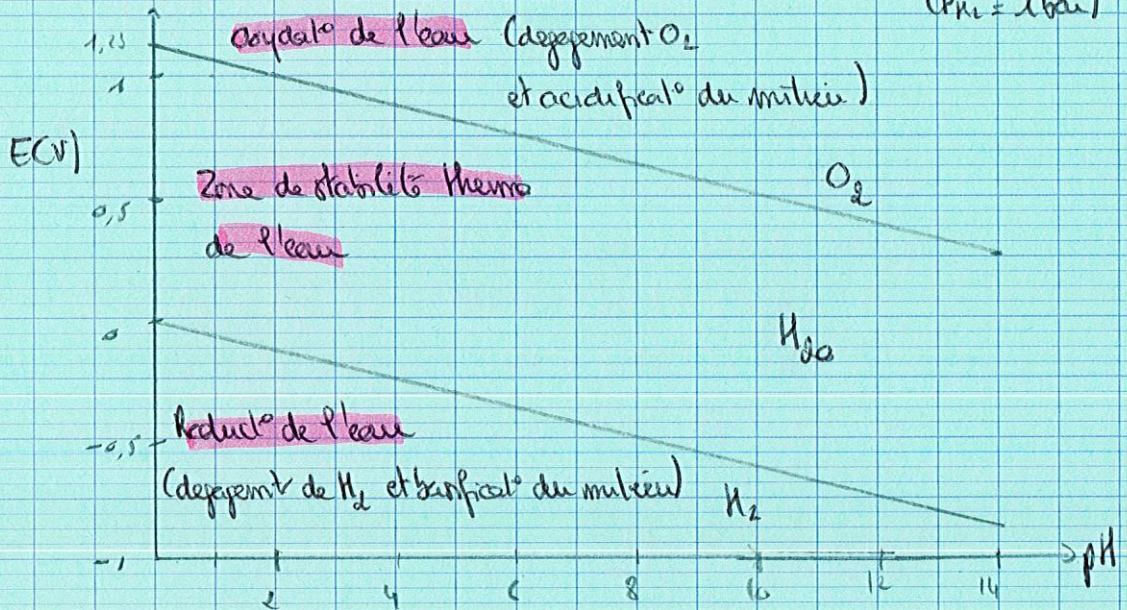 (PH₂ = 1 bar)
1,23
oxydat° de l'eau (degegement O₂
1
et acidificat° du milieu)
E(V)
Zone de stabilité thermo
O₂
0,5
de l'eau
0
H₂O
Reduct° de l'eau
-0,5
(degegemt de H₂ et basificat° du milieu)
H₂
-1
2 4 6 8 10 12 14 pH